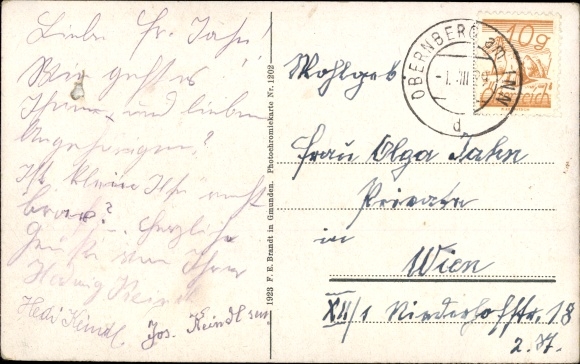 Liebe Fr. Jahn!
Wie geht es
Ihnen und lieben
Angehörigen?
Ist kleine Ilse recht
brav? Herzliche
Grüße von Ihrer
Hedwig Reindl
Hedi Reindl. Jos. Reindl sen.
1923 F. E. Brandt in Gmunden. Photochromiekarte Nr. 1202
10g
Österreich
OBERNBERG am INN
d
Wohlgeb
Frau Olga Jahn
Private
in
Wien
XII/1 Niederhofstr. 18